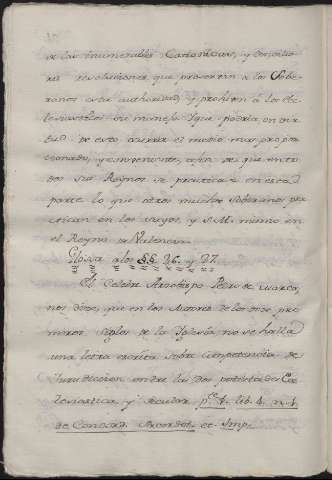 de las inumerables Canonicas, y conciliares
resoluciones que preservan a los Sobe-
ranos esta authoridad, y prohiven â los Ecle-
siasticos su manejo: que podria, en vir-
tud de esto usarse el medio mas propor-
cionado, y combeniente, afin de que en to-
dos sus Reynos se practicase en esta
parte lo que otros muchos soberanos prac-
tican en los suyos, y S.M. mismo en
el Reyno de Valencia.
Glosa alos §.§. 26. y 27.
El Celebre Arzobispo Pedro de Marca,
nos dice, que en los Autores de los doce pri-
meros siglos de la Yglesia, no se halla
una letra escrita sobre Competencia de
Jurisdiccion entre las dos potestades Ec-
lesiastica y secular lib. 4. n. 1.
de Concord. Sacerdot. et Imp.